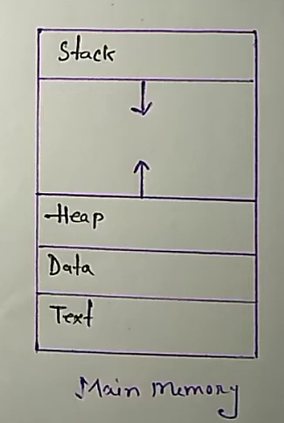 Stack
Heap
Data
Text
Main memory